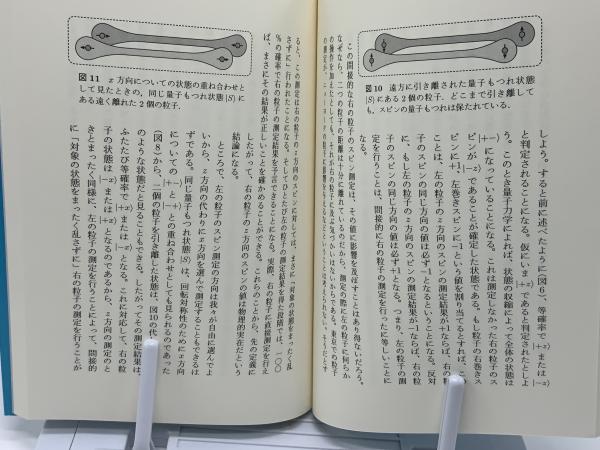 図10 遠方に引き離された量子もつれ状態
|S⟩にある2個の粒子．どこまで引き離して
も，スピンの量子もつれは保たれている．
しよう。すると前に述べたように（図6）、等確率で|+z⟩または|−z⟩
と判定されることになる。仮にいま|+z⟩であると判定されたとしよ
う。このとき量子力学によれば、状態の収縮によって全体の状態は
|+−⟩になっていることになる。これは測定しなかった右の粒子のス
ピンが|−z⟩であることが確定した状態である。もし粒子の右巻きス
ピンに+1、左巻きスピンに−1という値を割り当てるとすれば、この
ことは、左の粒子のz方向のスピンの測定結果が+1ならば、右の粒
子のスピンの同じ方向の値は必ず−1となるということになる。反対
に、もし左の粒子のz方向のスピンの測定結果が−1ならば、右の粒
子のスピンの同じ方向の値は必ず+1となる。つまり、左の粒子の測
定を行うことは、間接的に右の粒子の測定を行ったに等しいことに
なる。
この間接的な右の粒子のスピン測定は、その値に影響を及ぼすことはあり得ないだろう。
なぜなら、二つの粒子の距離は十分に離れているのだから、測定の際に左の粒子に何らか
の操作を加えたとしても、それが右の粒子に及ぶ気づかいはないからである。東京での粒子
図11 x方向についての状態の重ね合わせと
して見たときの，同じ量子もつれ状態|S⟩に
ある遠く離れた2個の粒子．
ると、この測定は右の粒子のz方向のスピンに対しては、まさに「対象の状態をまったく乱
さずに」行われたことになる。そしてひとたび左の粒子の測定結果を得た段階では、一〇〇
%の確率で右の粒子の測定結果を予言できることになる。実際、右の粒子に直接測定を行え
ば、まさにその結果が正しいことを確かめることができる。これらのことから、先の定義に
したがって、右の粒子のz方向のスピンの値は物理的実在だという
結論になる。
ところで、左の粒子のスピン測定の方向は我々が自由に選んでよ
いから、z方向の代わりにx方向を選んで測定することもできるは
ずである。同じ量子もつれ状態|S⟩は、回転対称性のためにx方向
についての|+−⟩と|−+⟩との重ね合わせとしても見られるのであった
（図8）から、二個の粒子を引き離した状態は、図10の代
のような状態だと見ることもできる。したがってその測定結果は、
ふたたび等確率で|+x⟩または|−x⟩となる。これに対応して、右の粒
子の状態は|−x⟩または|+x⟩となるのであるから、z方向の測定のと
きとまったく同様に、左の粒子の測定を行うことによって、間接的
に「対象の状態をまったく乱さずに」右の粒子の測定を行うことが